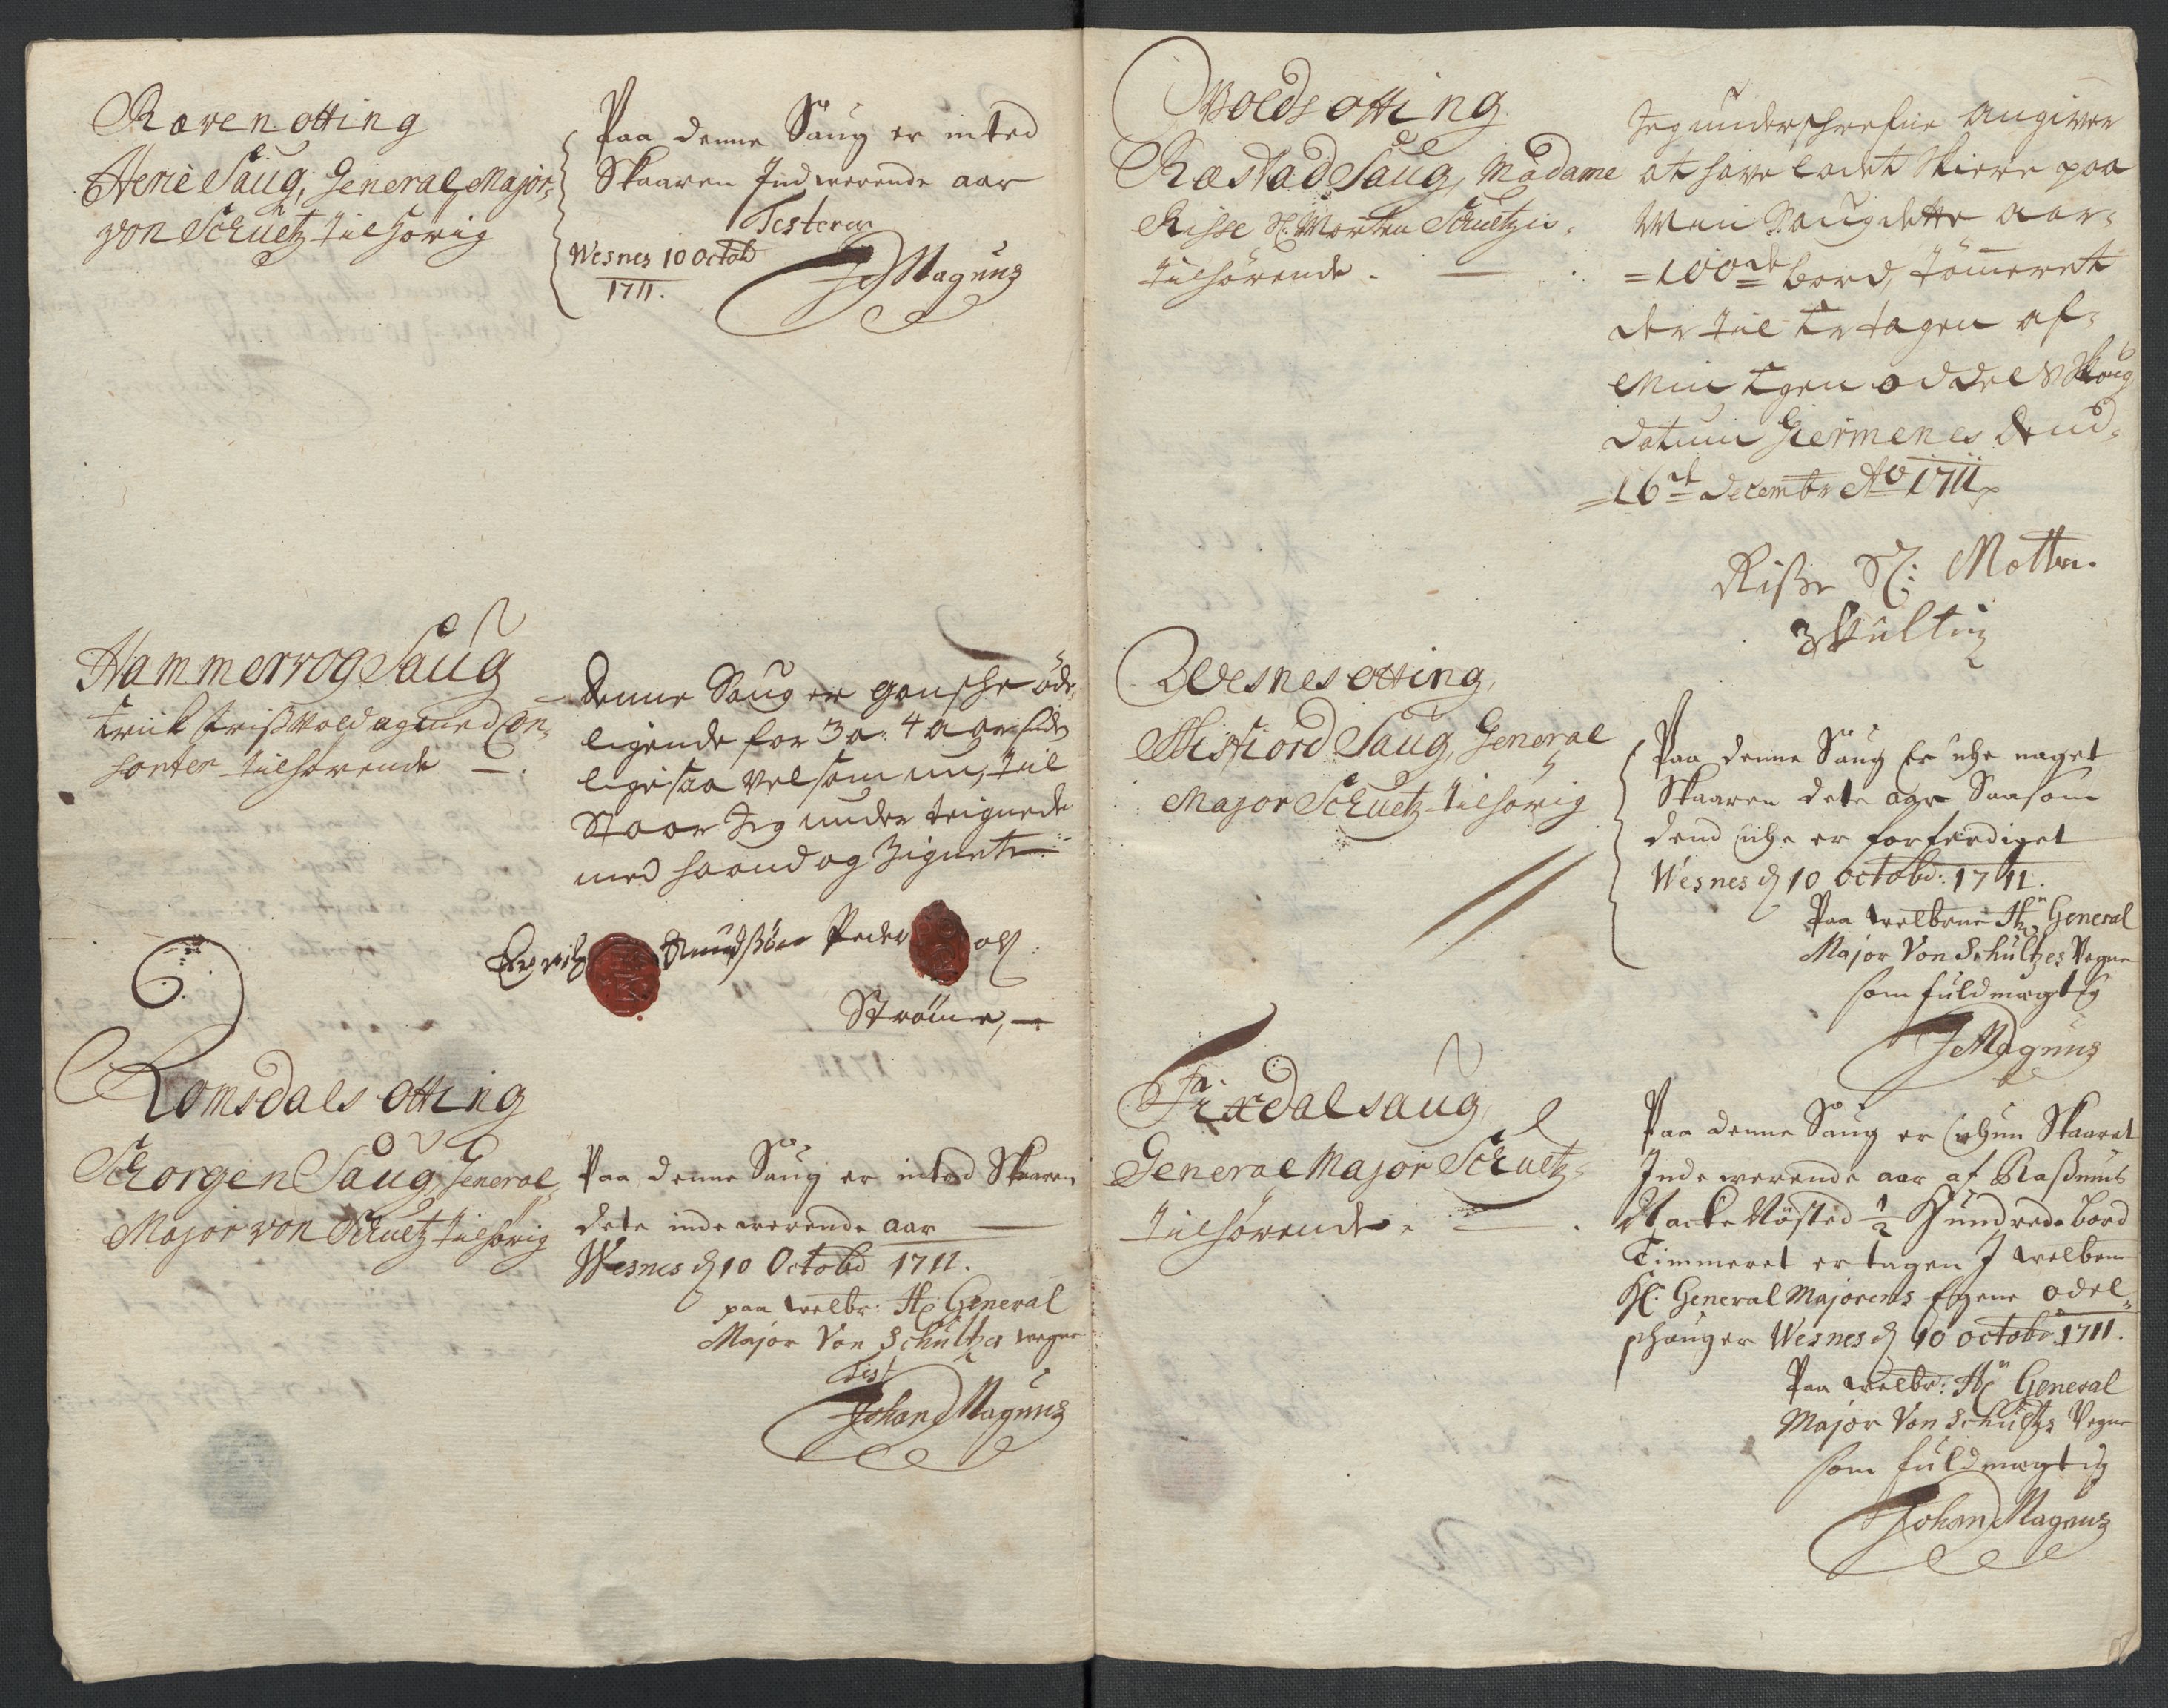 Raven otting
Herie Saug, General Major
von Schuetz tilhörig
Paa denne Saug er inted
Skaaren Indwerende aar
Testerer
Wesnes 10 Octob
1711.
J Magnus
Hammervog Saug
Erik Krißvold og med Con-
sorter tilhörende
Denne Saug er gansche öde
ligende for 3 a: 4 aar siden
ligesaa vel som nu, til
Staar Jeg under teignede
med haand og Zignete
Knudßön Peder
Ströme,
Romsdals otting
Schorgen Saug, General
Major von Schuetz tilhörig
Paa denne Saug er inted Skaaren
dete inde werende aar
Wesnes d 10 Octobr 1711.
paa welbr: Hr General
Major Von Schultzes wegne
Test
Johan Magnus
Woldsotting
Ræstad Saug, Madame
Risse Sl: Morten Schueltzis
tilhörende.
Jeg underschrefne angiver
at have ladet Skiere paa
Min Saug dette aar
100de bord, tömmeret
der til Er tagen af
Min Egen oddels Skoug
datum Giermenes Dend
16de Decembr Ao 1711
Riße Sl: Motten
Skultin
Wesnes otting,
Misfiord Saug, General
Major Schuetz tilhörig
Paa denne Saug Er iche naget
Skaaren dete aar Saasom
dend iche er forferdiget
Wesnes d 10 octobr: 1711.
Paa welbrne Hr General
Major Von Schultzes Vegne
som fuldmægtig
J Magnus
Fixdal saug
General Major Schuetz
tilhörende.
Paa denne Saug er ichun Skaaret
Inde werende aar af Raßmus
Nösted ½ Hundrede bord
Timmeret er tagen J welbrne
Hr. General Majorens Egene odel
schouger Wesnes d 10 octobr 1711.
Paa welbr: Hr General
Major Von Schultzs Vegne
som fuldmægtig
Johan Magnus